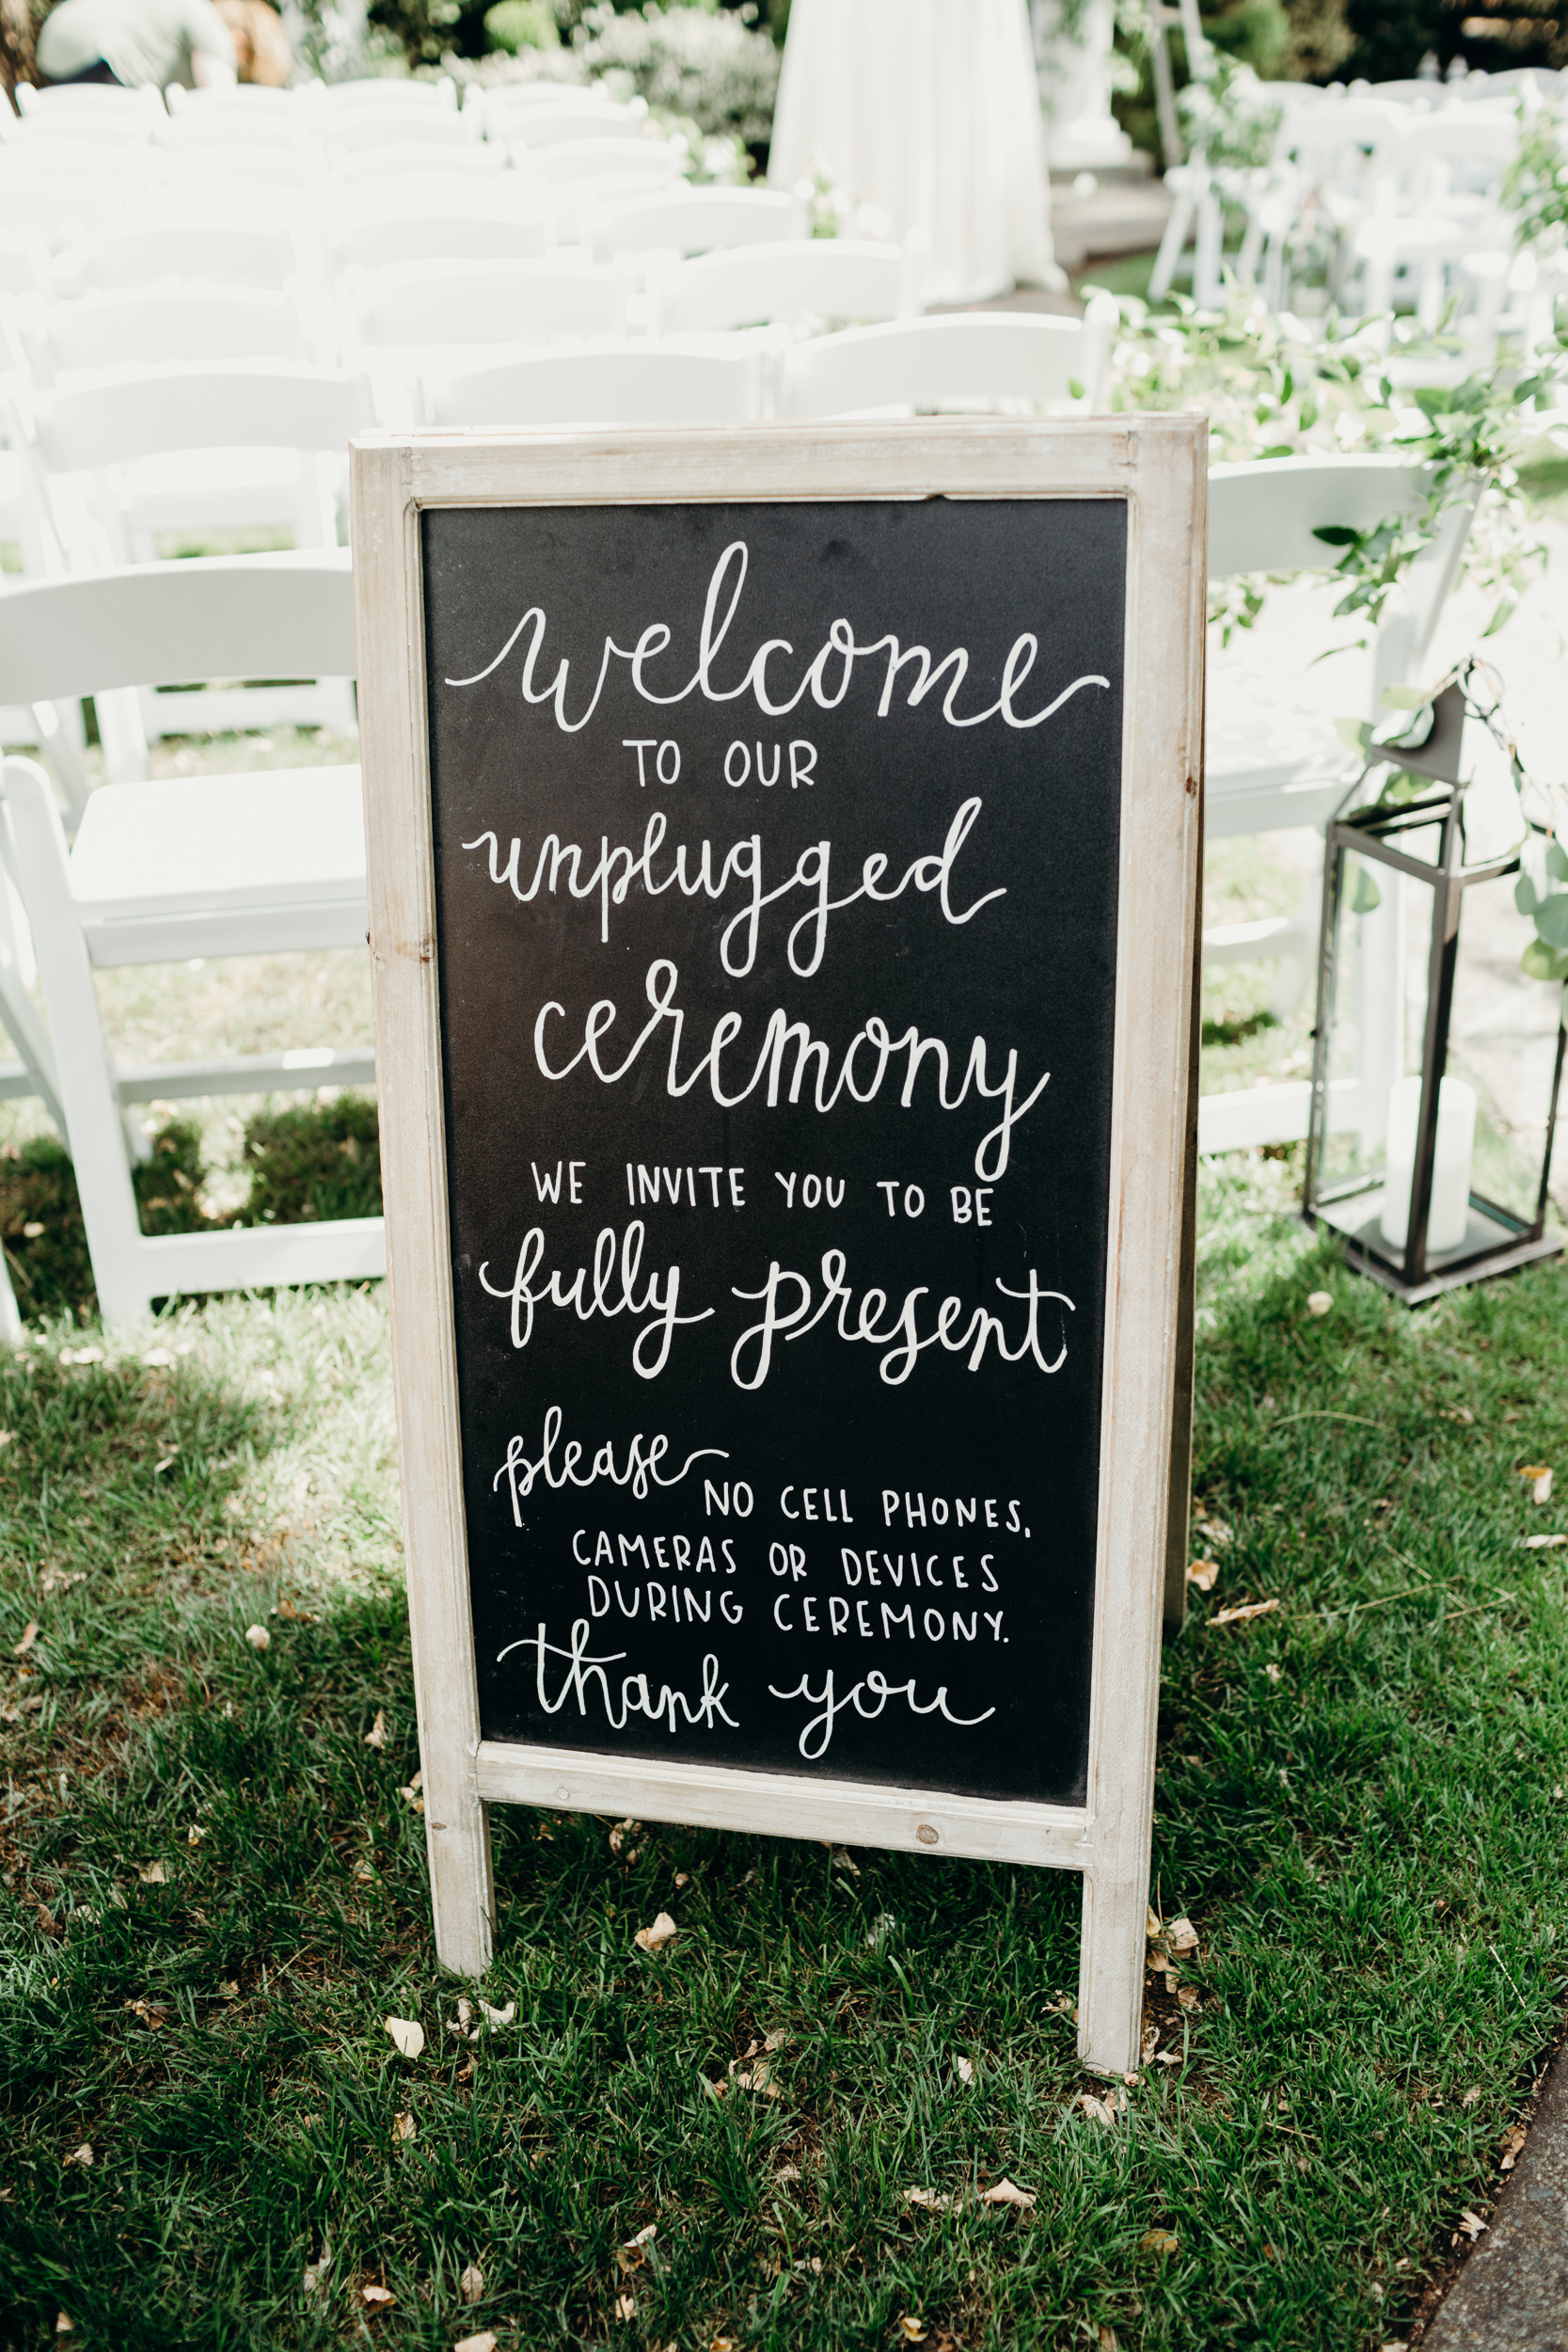 welcome
TO OUR
unplugged
ceremony
WE INVITE YOU TO BE
fully present
please NO CELL PHONES,
CAMERAS OR DEVICES
DURING CEREMONY.
thank you